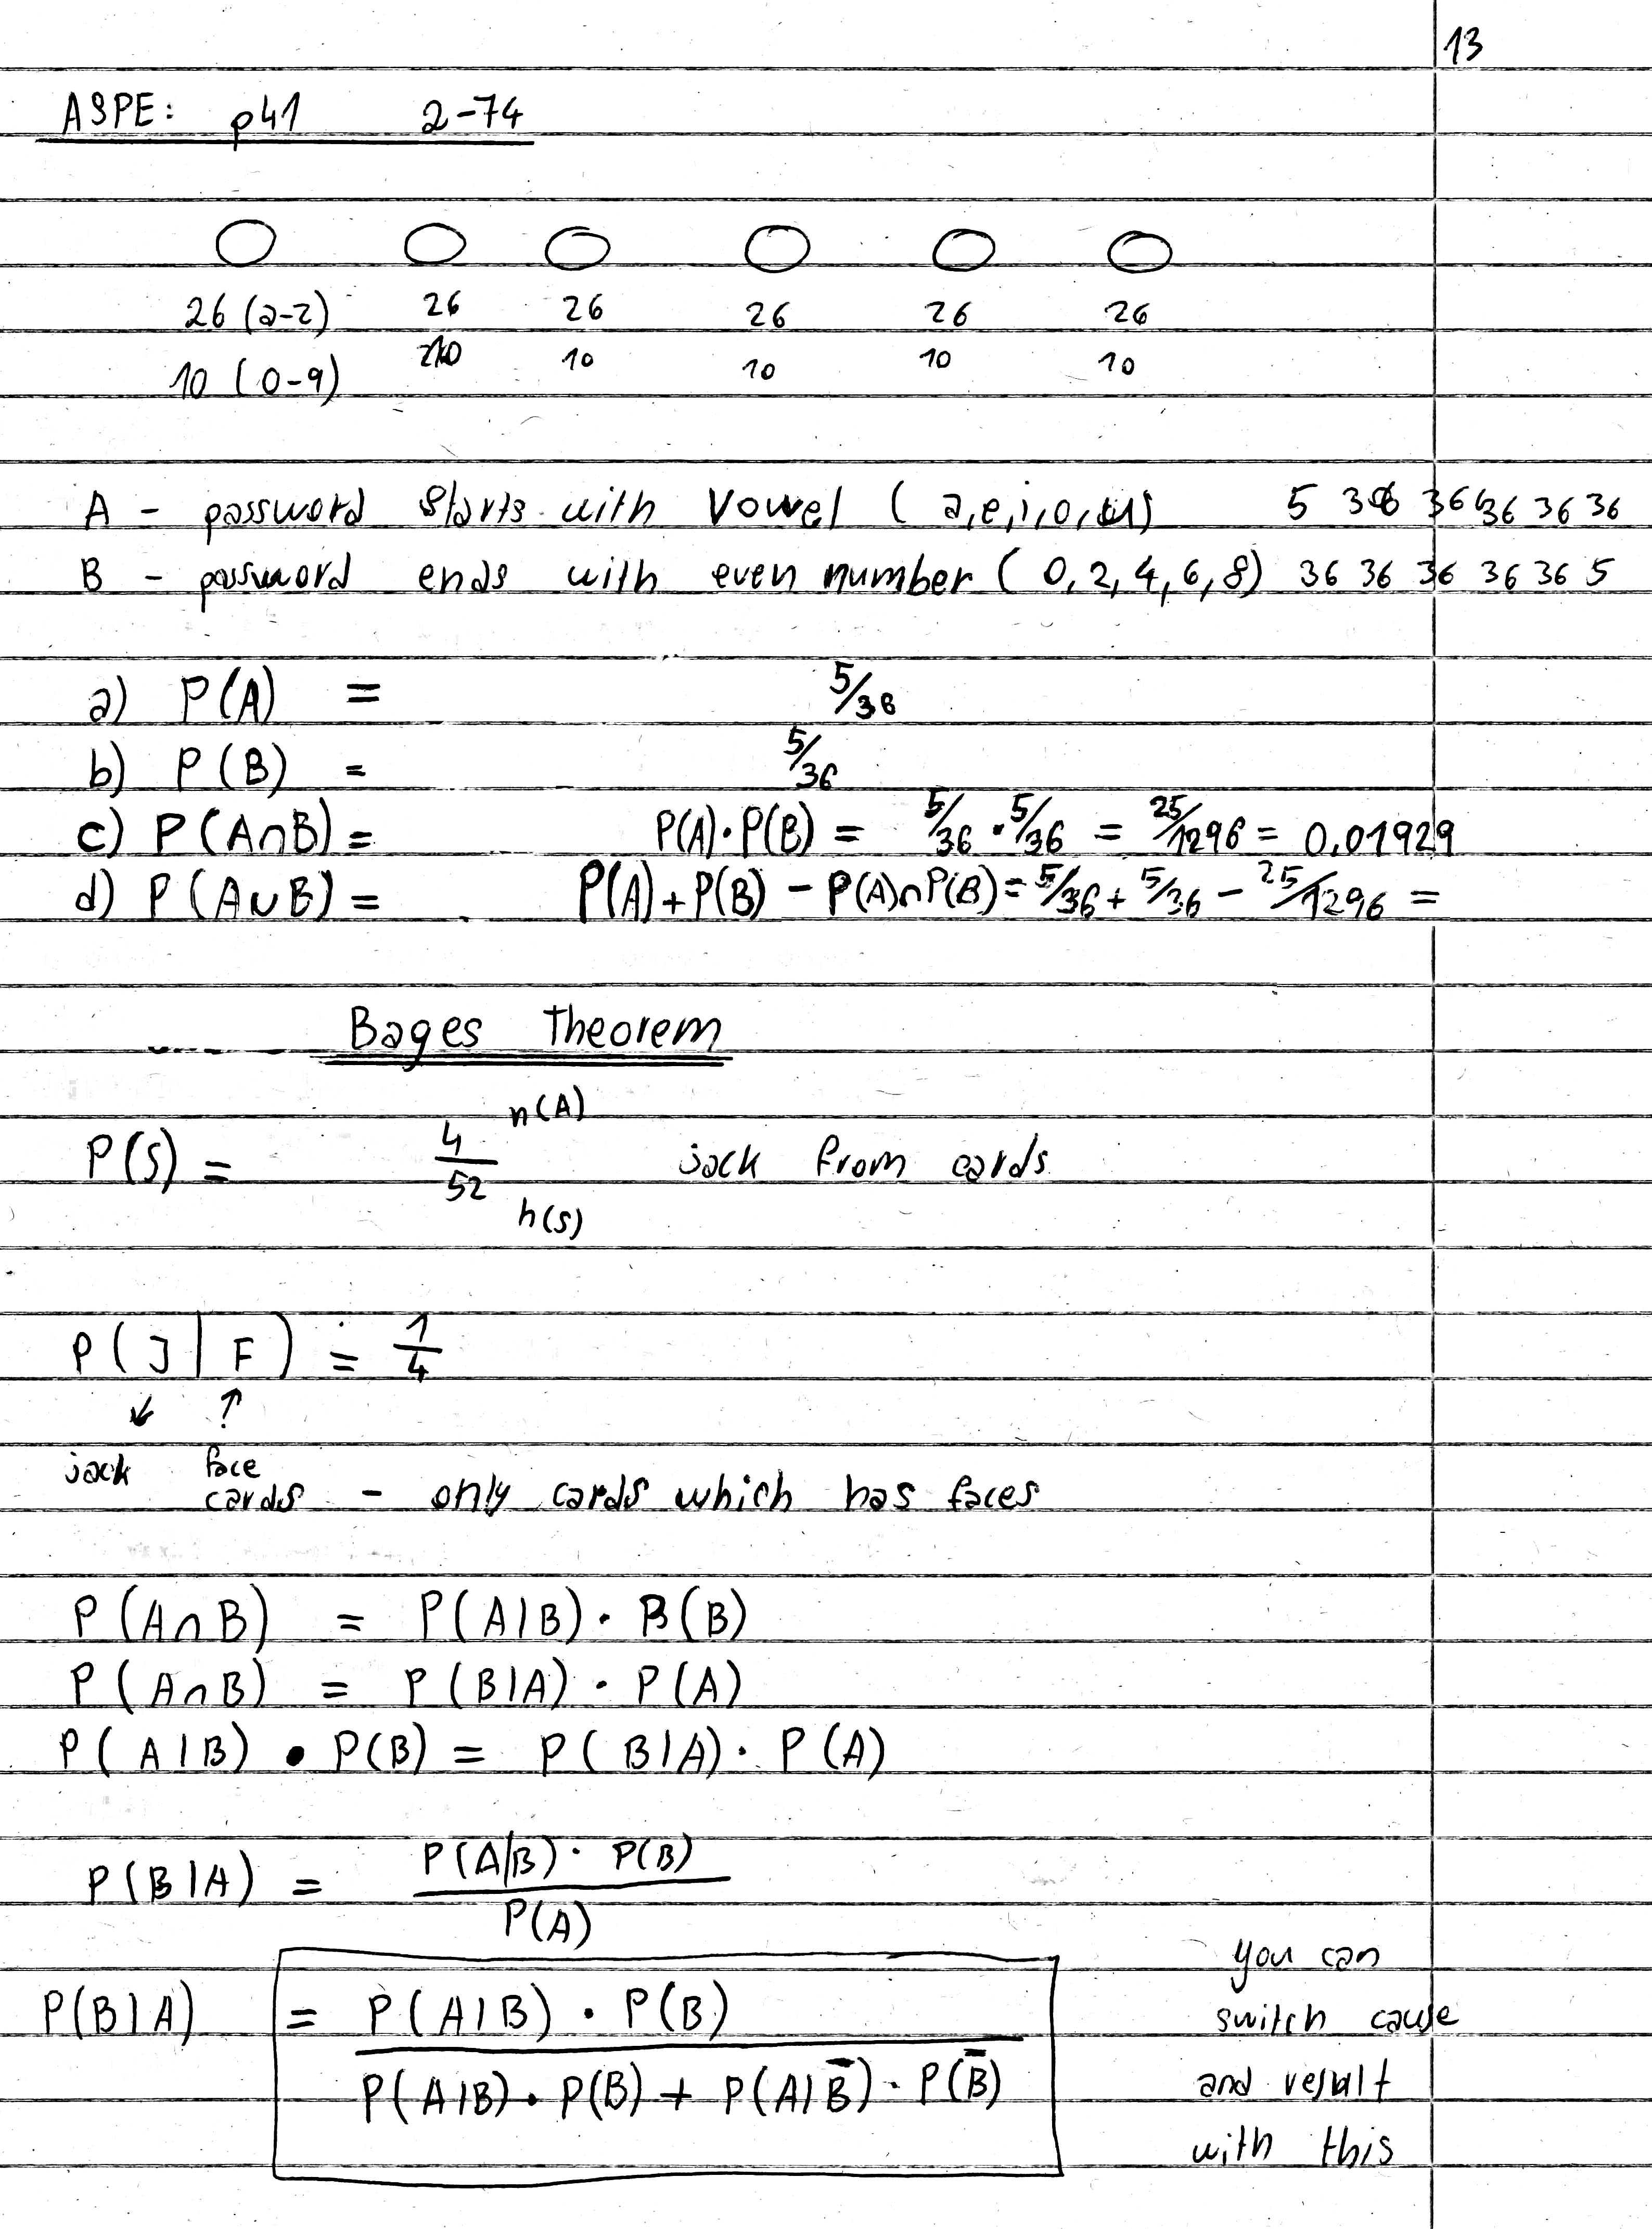 13
ASPE: p41 2-74
26 (a-z) 26 26 26 26 26
10 (0-9) 10 10 10 10 10
A - password starts with vowel (a,e,i,o,u) 5 36 36 36 36 36
B - password ends with even number (0,2,4,6,8) 36 36 36 36 36 5
a) P(A) = 5/36
b) P(B) = 5/36
c) P(A∩B) = P(A)·P(B) = 5/36 · 5/36 = 25/1296 = 0,01929
d) P(A∪B) = P(A)+P(B) - P(A)∩P(B) = 5/36 + 5/36 - 25/1296 =
Bayes Theorem
P(S) = 4/52 n(A) n(S) jack from cards
P(J|F) = 1/4
↓ ↑
jack face
cards - only cards which has faces
P(A∩B) = P(A|B) · B(B)
P(A∩B) = P(B|A) · P(A)
P(A|B) · P(B) = P(B|A) · P(A)
P(B|A) = P(A|B) · P(B) / P(A)
P(B|A) = P(A|B) · P(B) / P(A|B) · P(B) + P(A|B̄) · P(B̄)
you can
switch cause
and result
with this